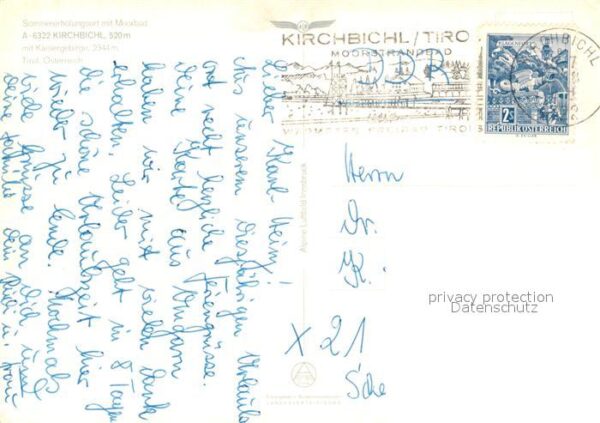 Sommererholungsort mit Moorbad
A-6322 KIRCHBICHL, 520 m
mit Kaisergebirge, 2344 m
Tirol, Österreich
KIRCHBICHL/TIROL
MOORSTRANDBAD
DDR
WÄRMSTES FREIBAD TIROLS
KIRCHBICHL
KLAGENFURT
2S
REPUBLIK ÖSTERREICH
Lieber Karl Heinz!
Aus unserem diesjährigen Urlaubs
ort recht herzliche Feriengrüsse.
Deine Karte aus Ungarn
haben wir mit vielen Dank
erhalten. Leider geht in 8 Tagen
die schöne Urlaubszeit hier
wieder zu Ende. Nochmals
viele Grüsse an Dich und
deine Familie dein Rudi u. Frau
Alpine Luftbild Innsbruck
Herrn
Dr.
K.
privacy protection
Datenschutz
x 21